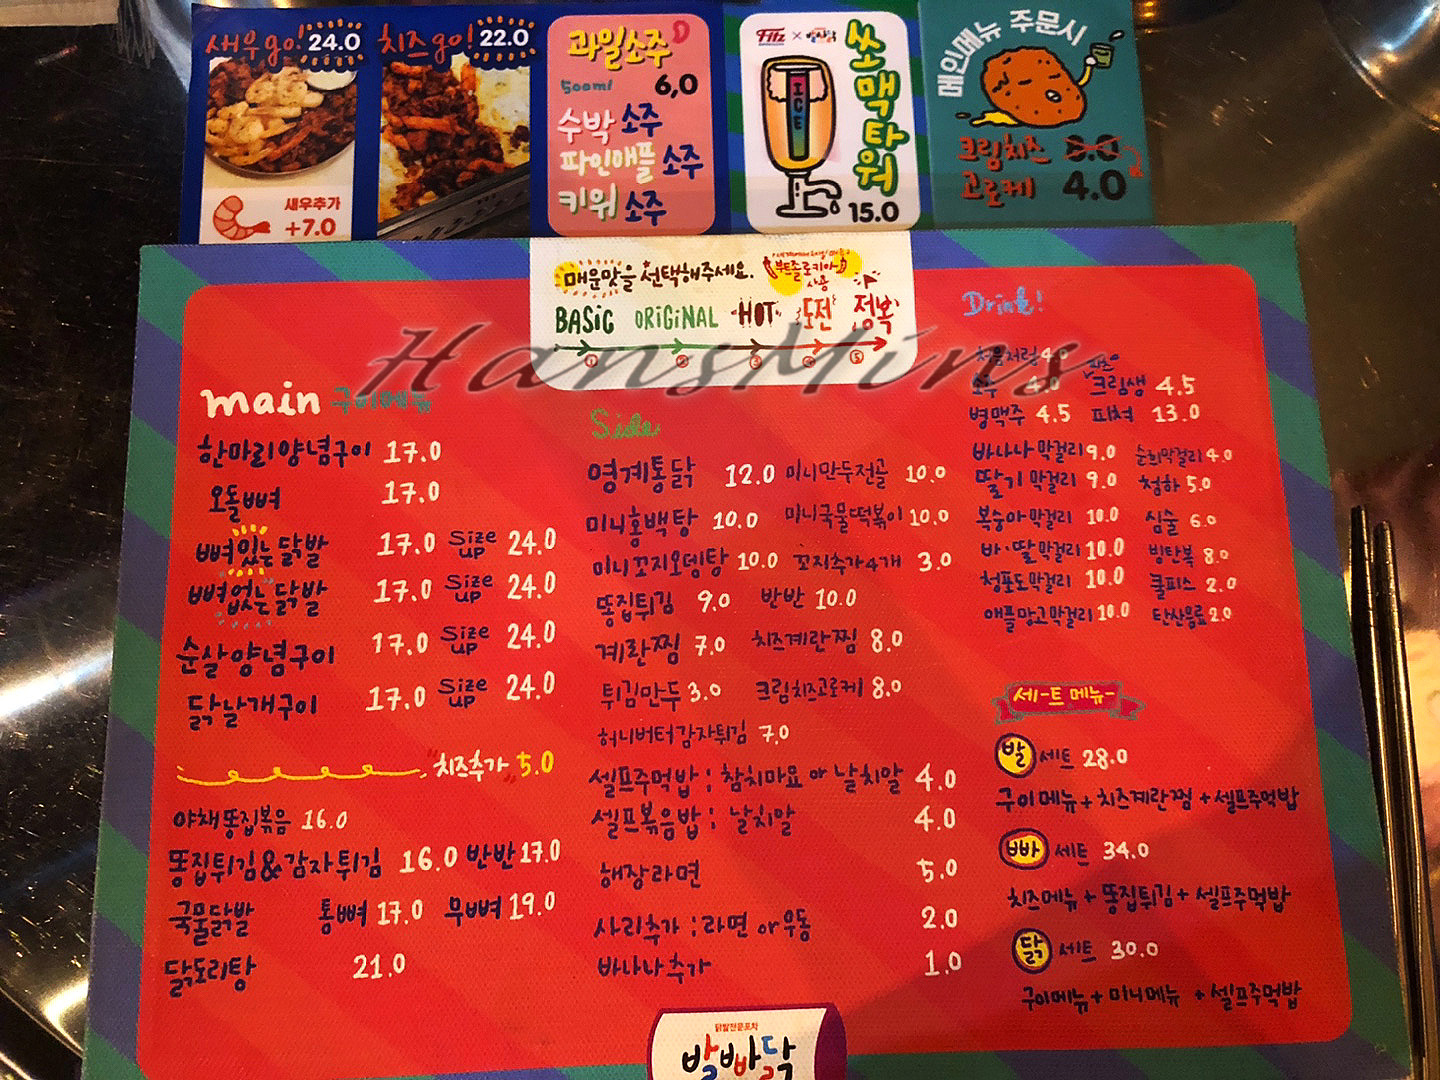 새우go! 24.0
새우추가
+7.0
치즈go! 22.0
과일소주
500ml 6,0
수박 소주
파인애플 소주
키위 소주
Fitz × 발빠닭
쏘맥타워
ICE
15.0
메인메뉴 주문시
크림치즈 8.0
고로케 4.0
매운맛을 선택해주세요.
부트졸로키아
사용
BASIC ORIGINAL HOT 도전 정복
① ② ③ ④ ⑤
HansMins
main 구이메뉴
한마리양념구이 17.0
오돌뼈 17.0
뼈있는닭발 17.0 Size up 24.0
뼈없는닭발 17.0 Size up 24.0
순살양념구이 17.0 Size up 24.0
닭날개구이 17.0 Size up 24.0
"치즈추가" 5.0
야채똥집볶음 16.0
똥집튀김&감자튀김 16.0 반반 17.0
국물닭발 통뼈 17.0 무뼈 19.0
닭도리탕 21.0
Side
영계통닭 12.0 미니만두전골 10.0
미니홍백탕 10.0 미니국물떡볶이 10.0
미니꼬지오뎅탕 10.0 꼬지추가4개 3.0
똥집튀김 9.0 반반 10.0
계란찜 7.0 치즈계란찜 8.0
튀김만두 3.0 크림치즈고로케 8.0
허니버터감자튀김 7.0
셀프주먹밥 ; 참치마요 or 날치알 4.0
셀프볶음밥 ; 날치알 4.0
해장라면 5.0
사리추가 ; 라면 or 우동 2.0
바나나추가 1.0
Drink!
처음처럼 4.0
4.0 크림생 4.5
병맥주 4.5 피쳐 13.0
바나나막걸리 9.0 순희막걸리 4.0
딸기막걸리 9.0 청하 5.0
복숭아막걸리 10.0 심술 6.0
바·딸막걸리 10.0 빙탄복 8.0
청포도막걸리 10.0 쿨피스 2.0
애플망고막걸리 10.0 탄산음료 2.0
세-트 메뉴-
발 세트 28.0
구이메뉴 + 치즈계란찜 + 셀프주먹밥
빠 세트 34.0
치즈메뉴 + 똥집튀김 + 셀프주먹밥
닭 세트 30.0
구이메뉴 + 미니메뉴 + 셀프주먹밥
닭발전문포차
발빠닭